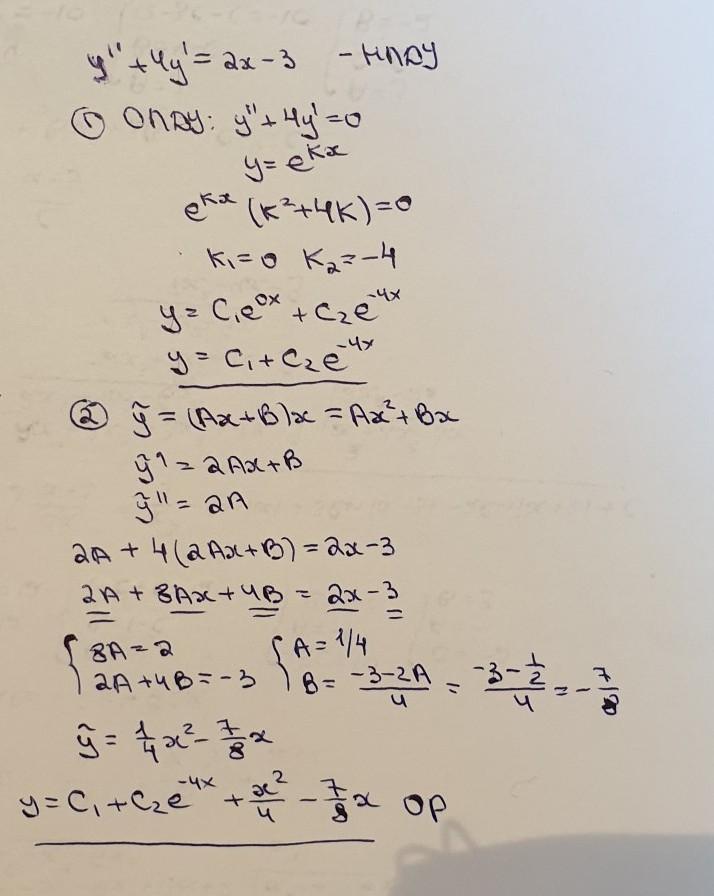 y'' + 4y' = 2x - 3 - НЛДУ
① ОЛДУ: y'' + 4y' = 0
y = e^{kx}
e^{kx} (k² + 4k) = 0
k₁ = 0 k₂ = -4
y = C₁e^{0x} + C₂e^{-4x}
y = C₁ + C₂e^{-4x}
② ỹ = (Ax + B)x = Ax² + Bx
ỹ' = 2Ax + B
ỹ'' = 2A
2A + 4(2Ax + B) = 2x - 3
2A + 8Ax + 4B = 2x - 3
{ 8A = 2 { A = 1/4
2A + 4B = -3 B = (-3 - 2A)/4 = (-3 - 1/2)/4 = -7/8
ỹ = 1/4 x² - 7/8 x
y = C₁ + C₂e^{-4x} + x²/4 - 7/8 x ОР